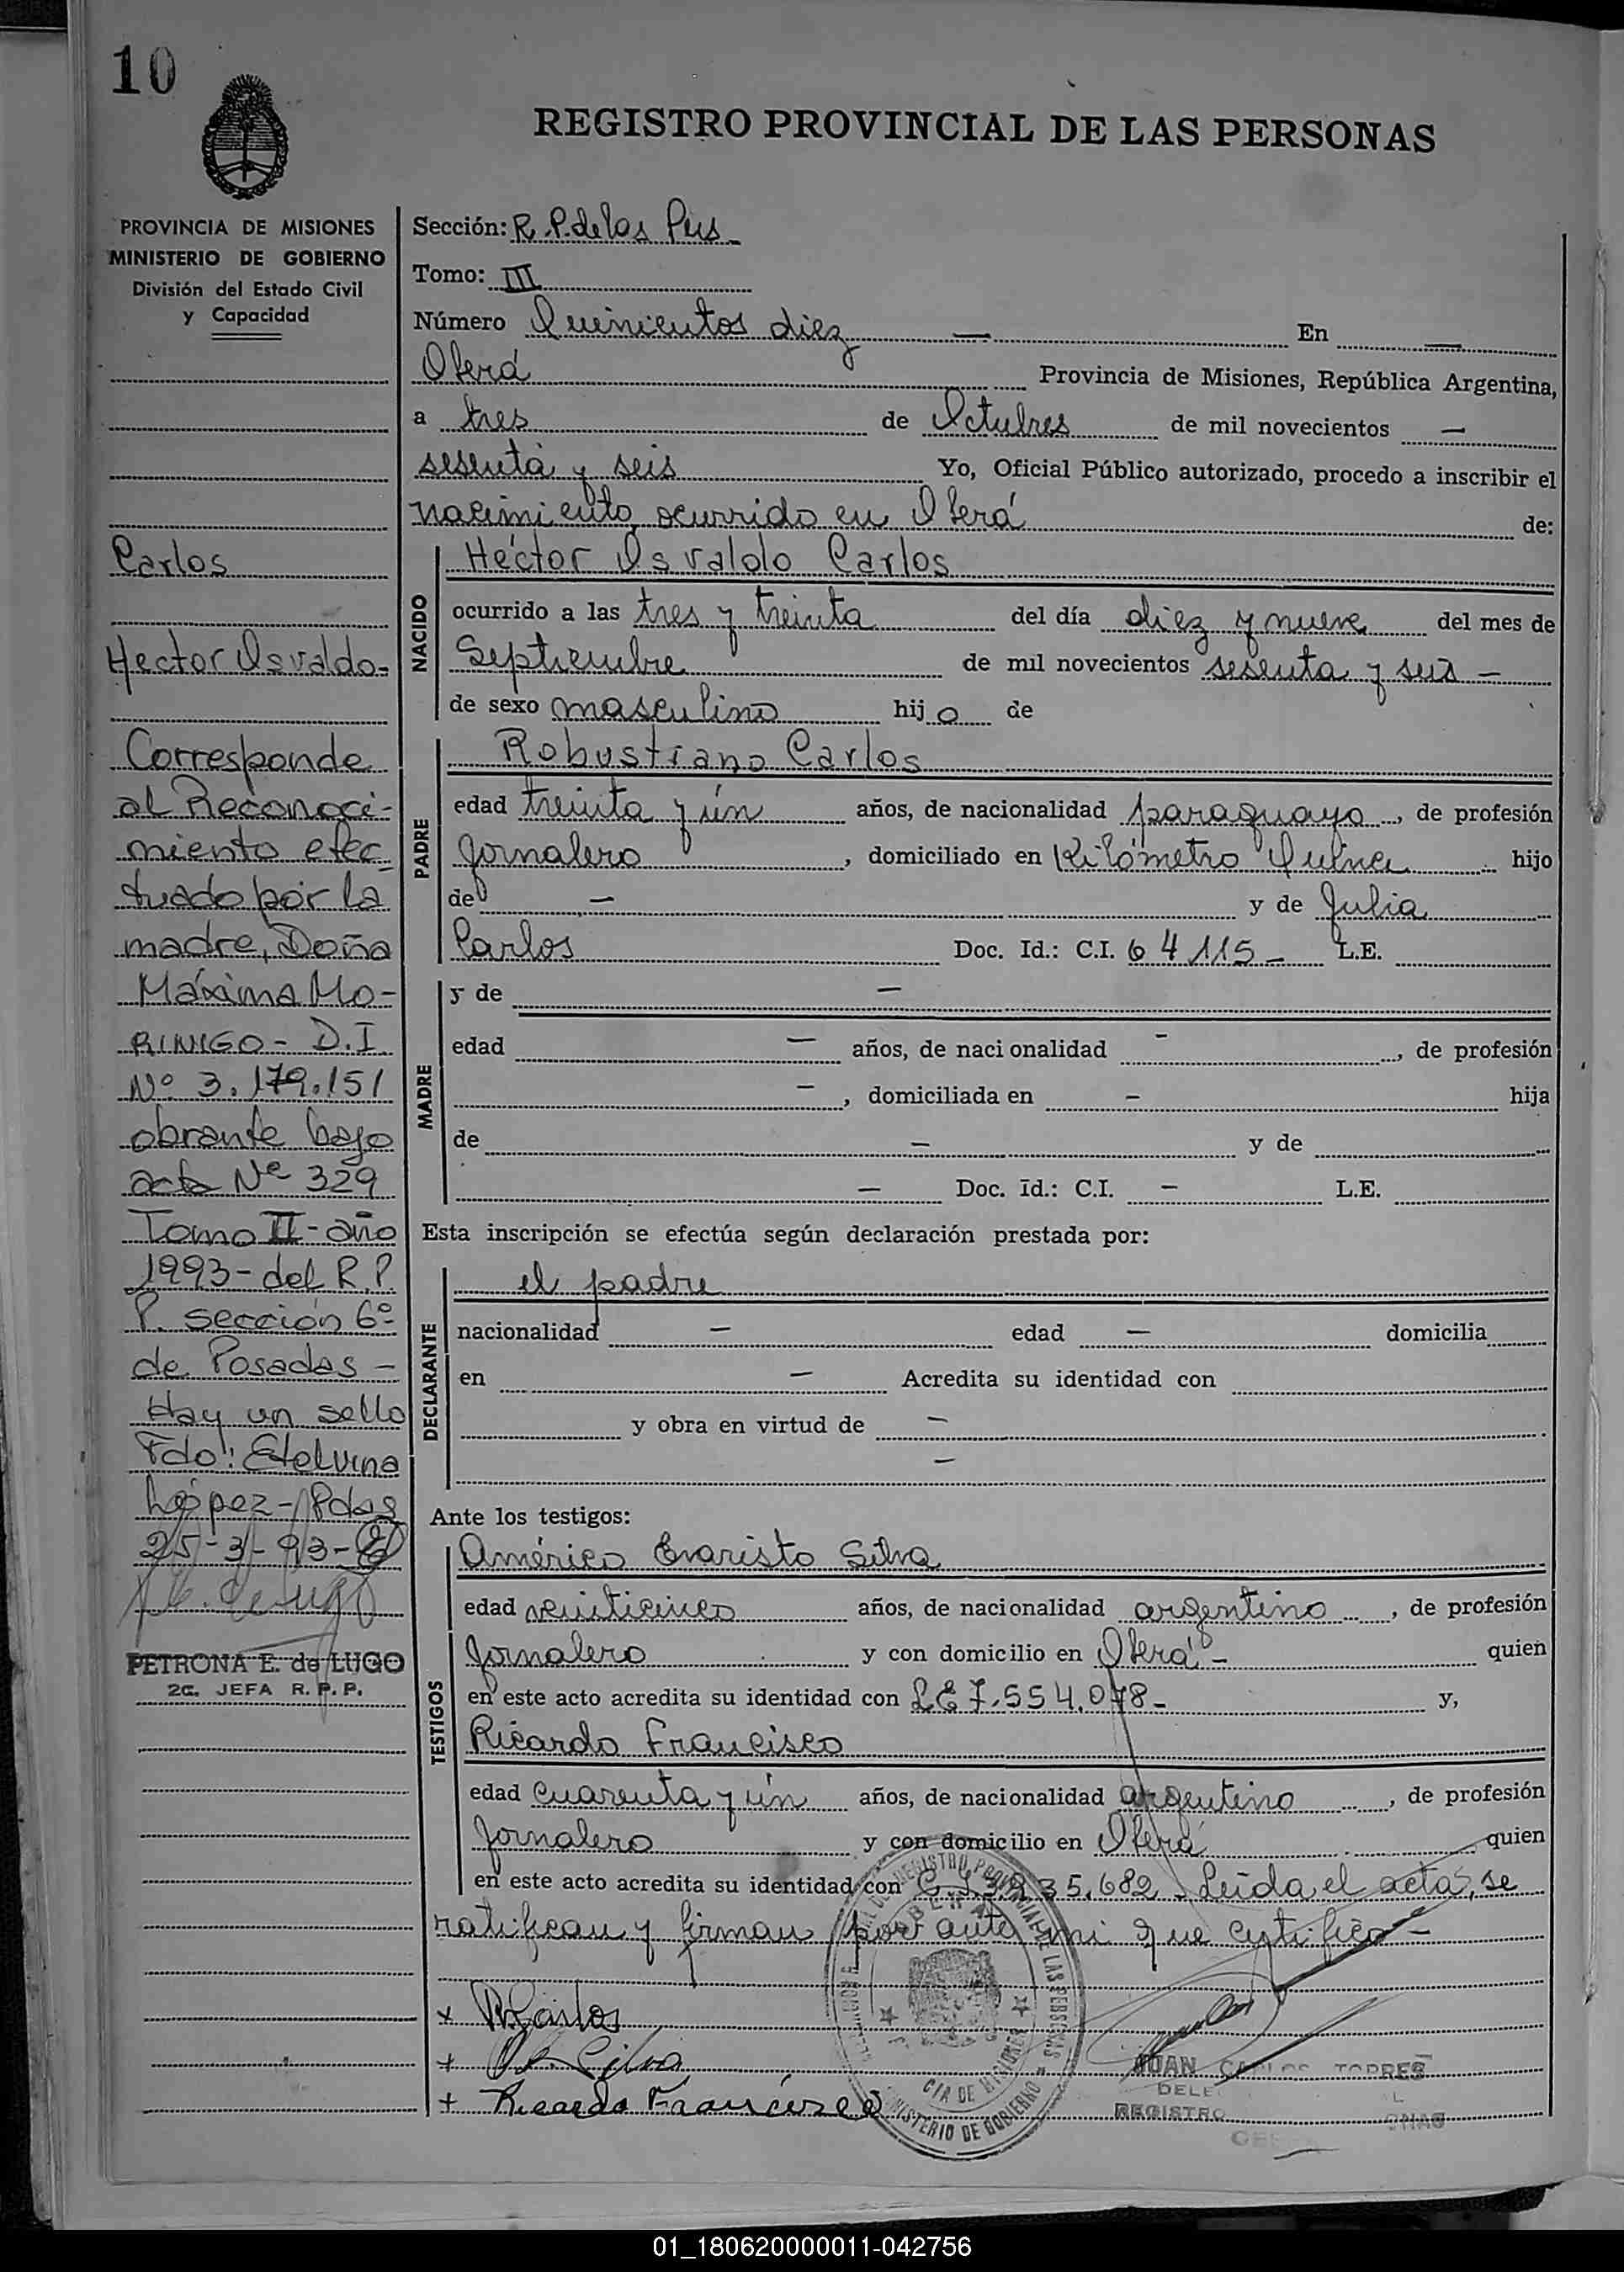 10
REGISTRO PROVINCIAL DE LAS PERSONAS
PROVINCIA DE MISIONES
MINISTERIO DE GOBIERNO
División del Estado Civil
y Capacidad
Carlos
Hector Osvaldo-
Corresponde
al Reconoci-
miento efec
tuado por la
madre, Doña
Máxima Mo-
RINIGO - D.I
Nº 3.179.151
obrante bajo
acta Nº 329
Tomo II - año
1993 - del R.P.
P. sección 6º
de Posadas -
Hay un sello
Fdo: Etelvina
López - Pdas
25-3-93-
PETRONA E. de LUGO
2a. JEFA R. P. P.
Sección: R.P. de las Pers -
Tomo: III
Número Quinientos diez — En —
Oberá Provincia de Misiones, República Argentina,
a tres de Octubres de mil novecientos —
sesenta y seis Yo, Oficial Público autorizado, procedo a inscribir el
nacimiento ocurrido en Oberá de:
NACIDO
Héctor Osvaldo Carlos
ocurrido a las tres y treinta del día diez y nueve del mes de
Septiembre de mil novecientos sesenta y seis -
de sexo masculino hijo de
PADRE
Robustiano Carlos
edad treinta y ún años, de nacionalidad paraguayo, de profesión
Jornalero, domiciliado en Kilómetro Quince hijo
de — y de Julia
Carlos Doc. Id.: C.I. 64115 - L.E.
MADRE
y de —
edad — años, de nacionalidad -, de profesión
-, domiciliada en - hija
de — y de
— Doc. Id.: C.I. - L.E.
Esta inscripción se efectúa según declaración prestada por:
DECLARANTE
el padre
nacionalidad — edad — domicilia
en — Acredita su identidad con
y obra en virtud de —
—
Ante los testigos:
TESTIGOS
Américo Evaristo Silva
edad veinticinco años, de nacionalidad argentino, de profesión
Jornalero y con domicilio en Oberá - quien
en este acto acredita su identidad con LE 7.554.078 - y,
Ricardo Francisco
edad cuarenta y ún años, de nacionalidad argentino, de profesión
Jornalero y con domicilio en Oberá quien
en este acto acredita su identidad con 35.682. Leída el acta, se
ratifican y firman por ante mi que certifico -
x R Carlos
+ Silva
+ Ricardo Francisco
JUAN CARLOS TORRES
REGISTRO
MINISTERIO DE GOBIERNO
01_180620000011-042756